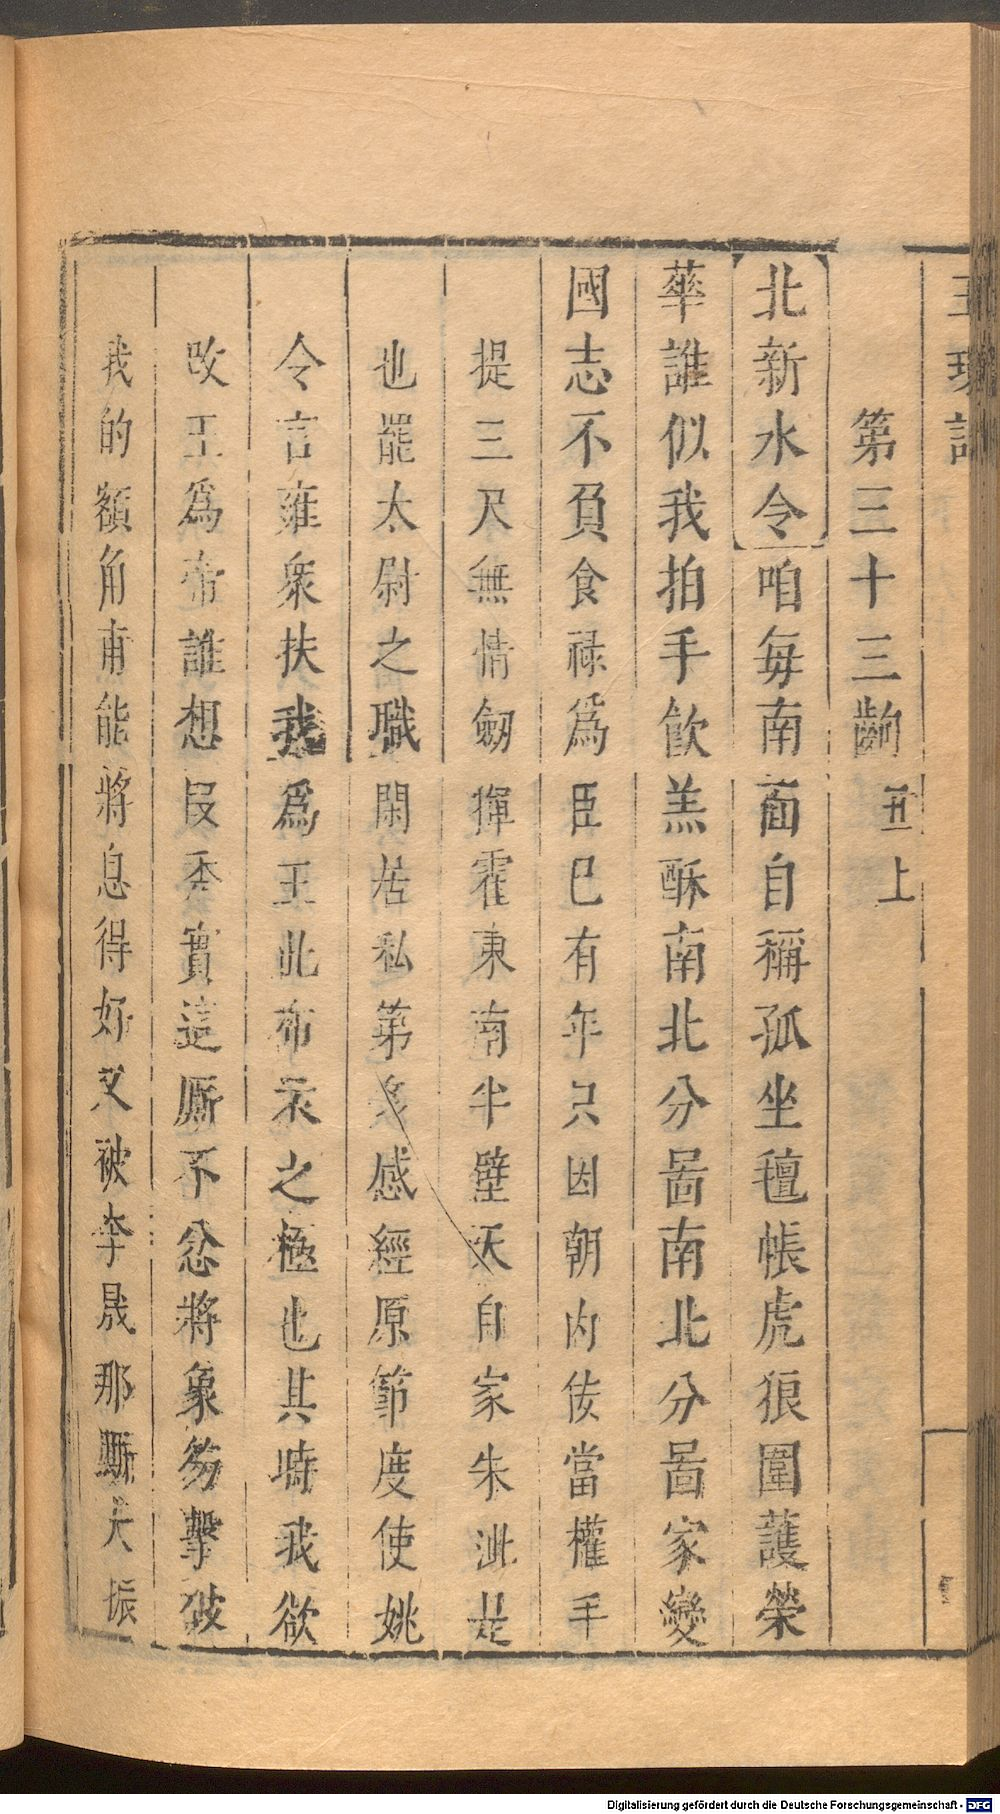 玉環記
第三十三齣 丑上
北新水令咱每南面自稱孤坐氊帳虎狼圍護榮
華誰似我拍手飲羔酥南北分啚南北分啚家變
國志不負食祿爲臣巳有年只因朝內佞當權手
提三尺無情劒揮霍東南半壁天自家朱泚是
也罷太尉之職閑居私第感經原節度使姚
令言雍衆扶我爲王此布衣之極也其時我欲
改王爲帝誰想叚秀實這厮不忿將象笏擊破
我的額角甫能將息得好又被李晟那厮大振
Digitalisierung gefördert durch die Deutsche Forschungsgemeinschaft - DFG